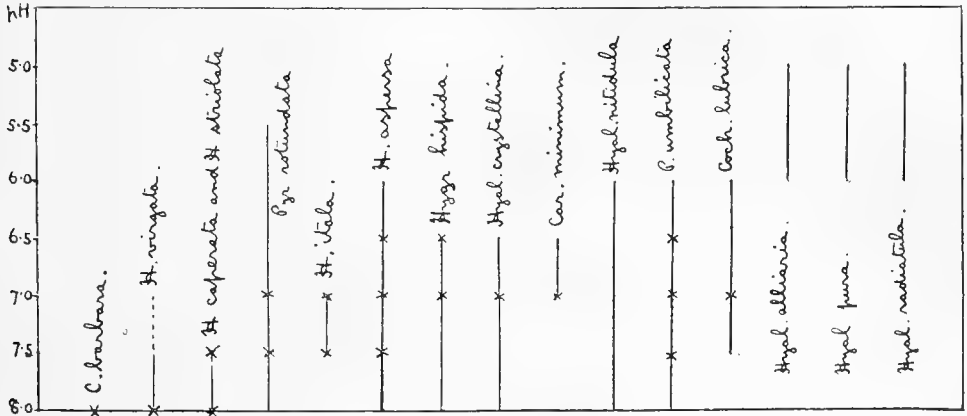 pH
5.0
5.5
6.0
6.5
7.0
7.5
8.0
C. barbara.
H. virgata.
H caperata and H striolata
Pyr rotundata
H. itala.
H. aspersa
Hygr hispida.
Hyal. crystallina.
Car. minimum.
Hyal. nitidula
P. umbilicata
Coch. lubrica.
Hyal. alliaria.
Hyal pura.
Hyal. radiatula.